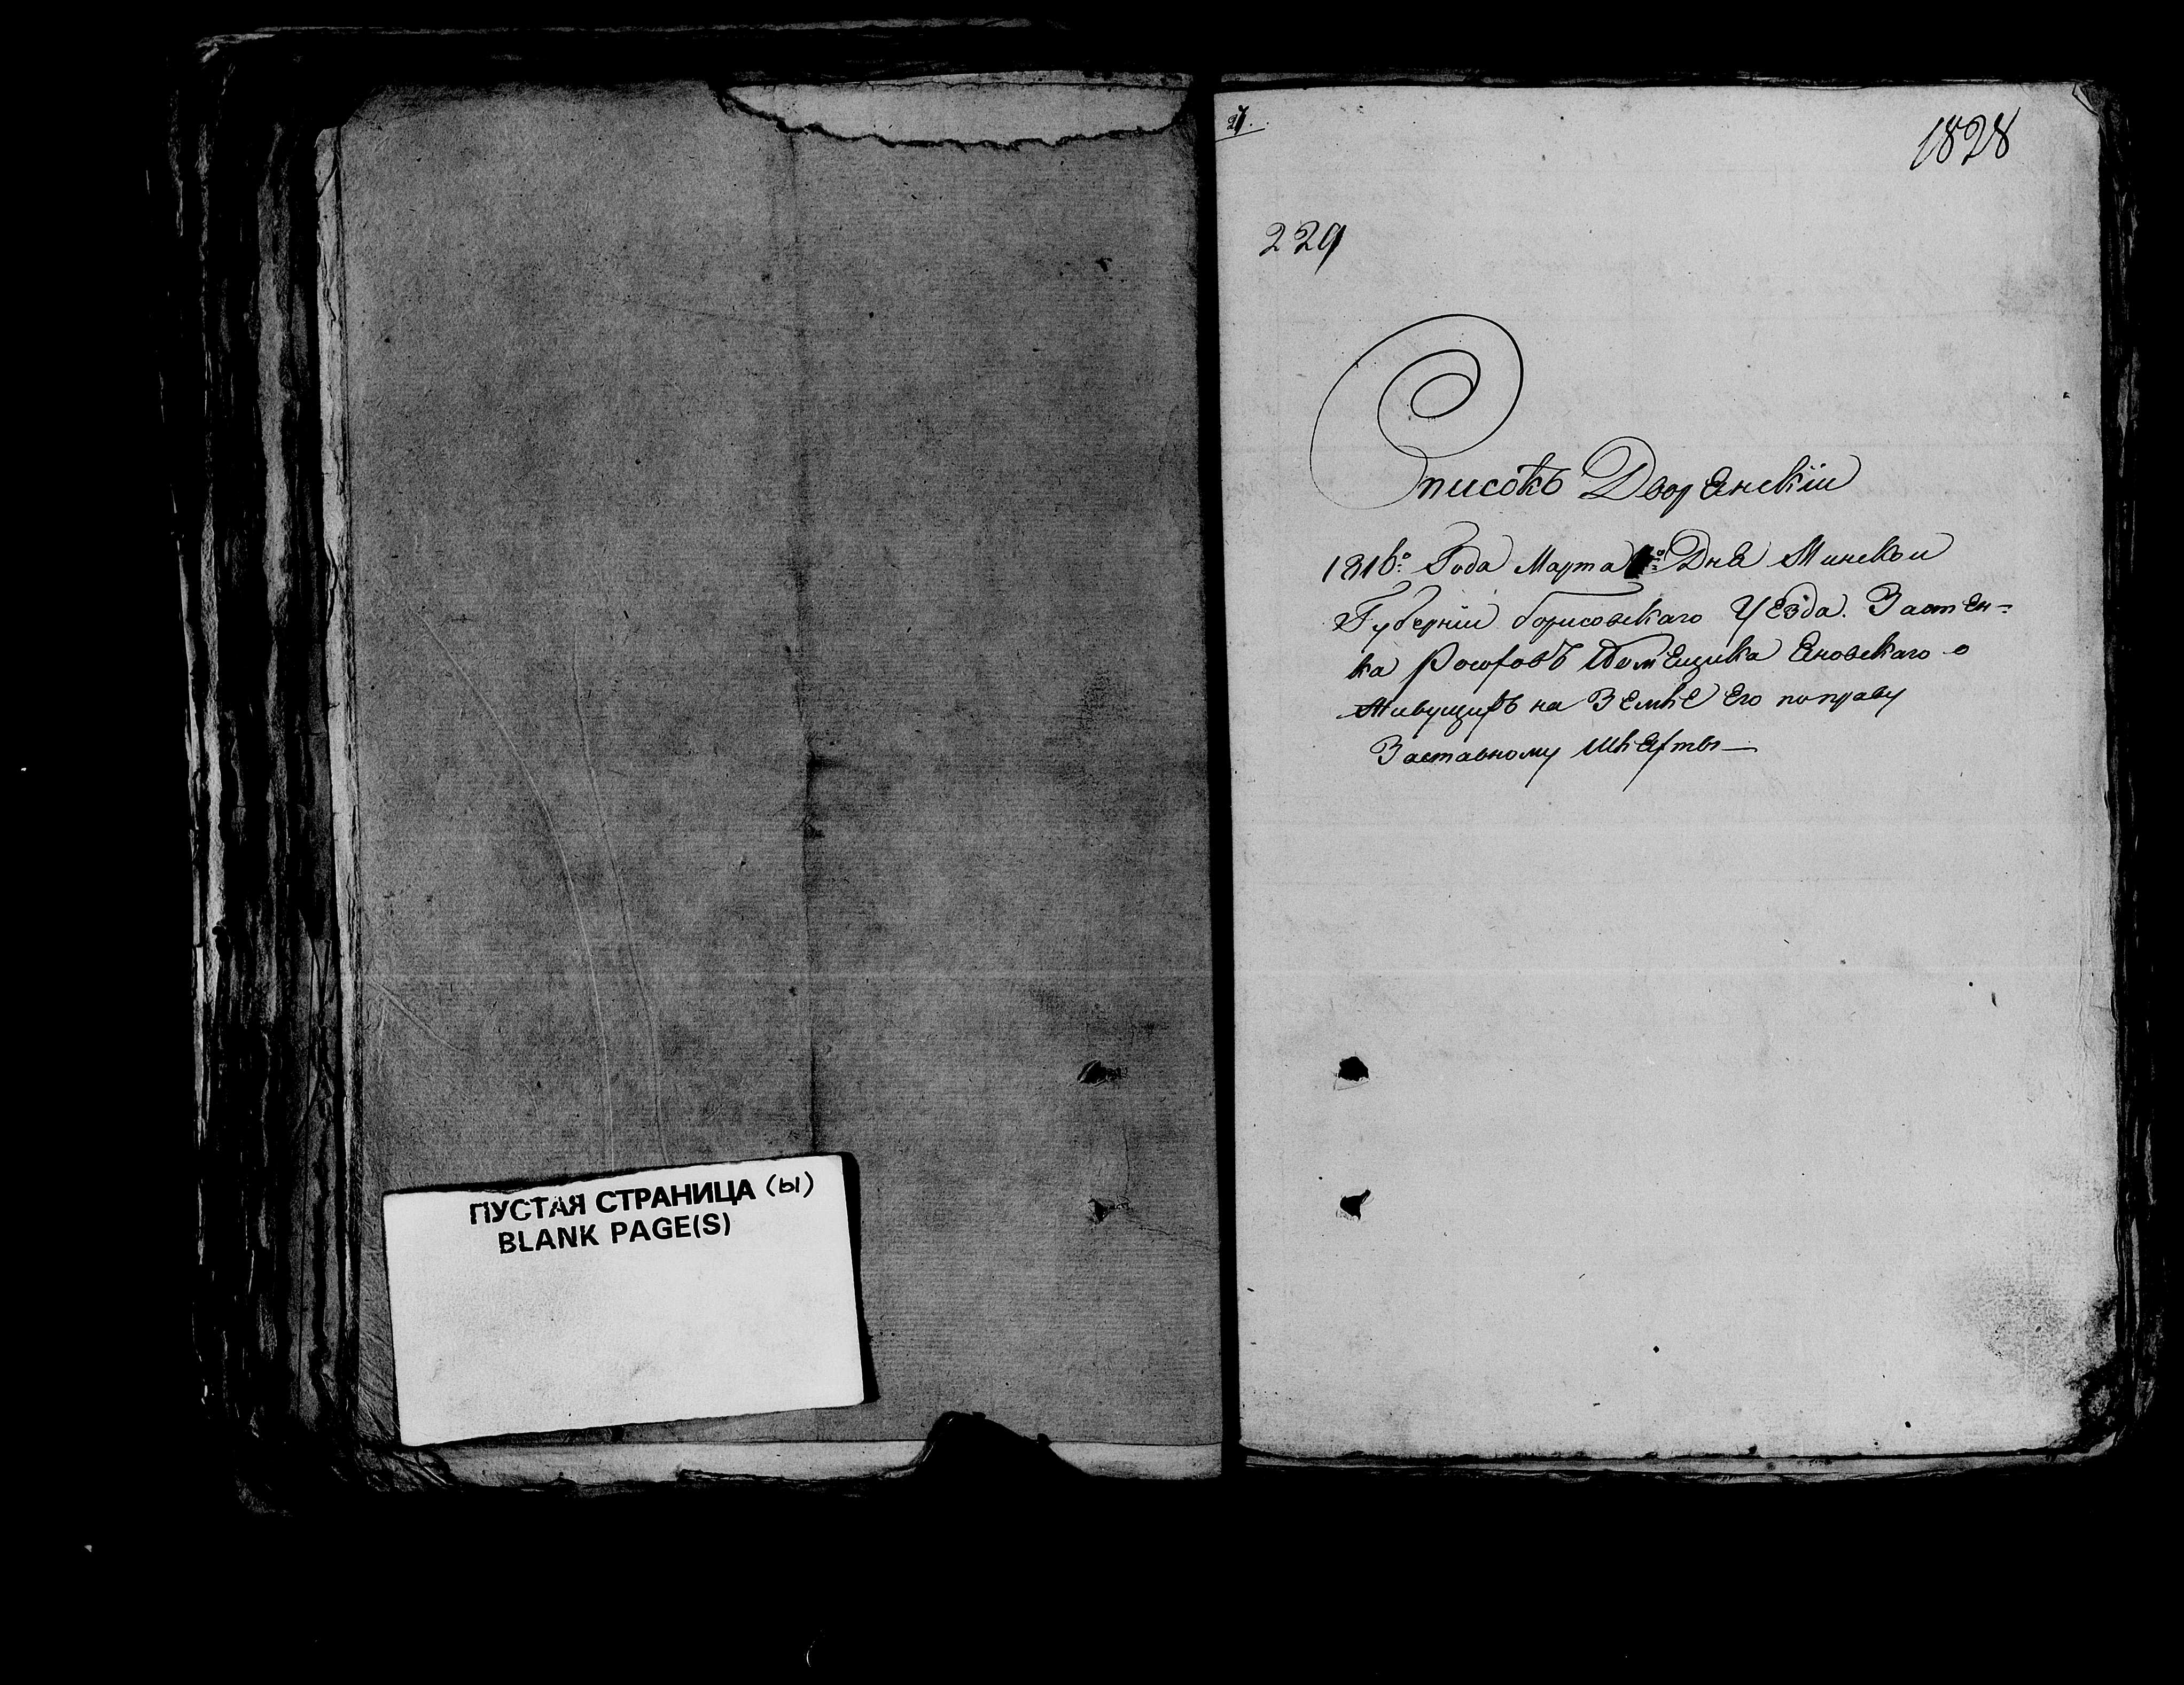 ПУСТАЯ СТРАНИЦА (ы)
BLANK PAGE(S)
1828
229
Списокъ Дворянскіи
1816:º Года Марта Дня Минскои
Губерніи борисовскаго Уезда. Застен=
ка Помещика Яновскаго о
Живущихъ на Земле Его по праву
Заставному Шляхты —